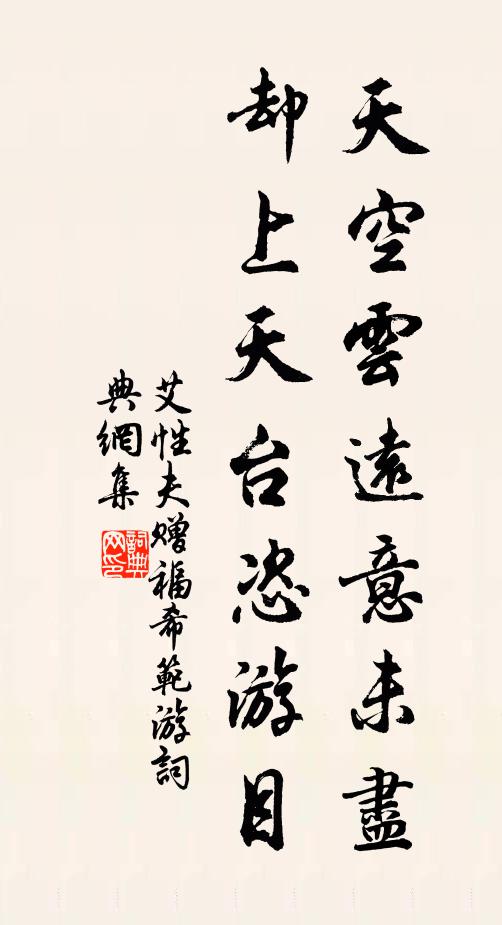 天空雲遠意未盡
却上天台恣游目
艾性夫贈福希範游詞
典網集
詞典
网印